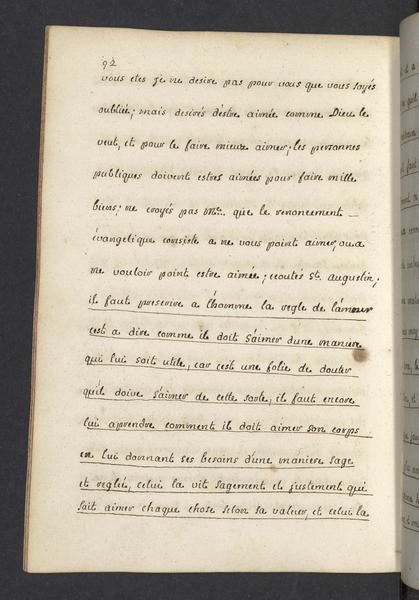 92
vous etes je ne desire pas pour vous que vous soyés
oubliée; mais desirés d'estre aimée comme Dieu le
veut, et pour le faire mieux aimer; les personnes
publiques doivent estres aimées pour faire mille
biens; ne croyés pas Me. que le renoncement
évangelique consiste a ne vous point aimer, ou a
ne vouloir point estre aimée; ecoutés St. augustin;
il faut prescrire a l'homme la regle de l'amour
c'est a dire comme il doit s'aimer d'une maniere
qui lui soit utile, car c'est une folie de douter
qu'il doive s'aimer de cette sorte, il faut encore
lui aprendre comment il doit aimer son corps
en lui donnant ses besoins d'une maniere sage
et reglée, celui la vit sagement et justement qui
sait aimer chaque chose selon sa valeur, et celui la